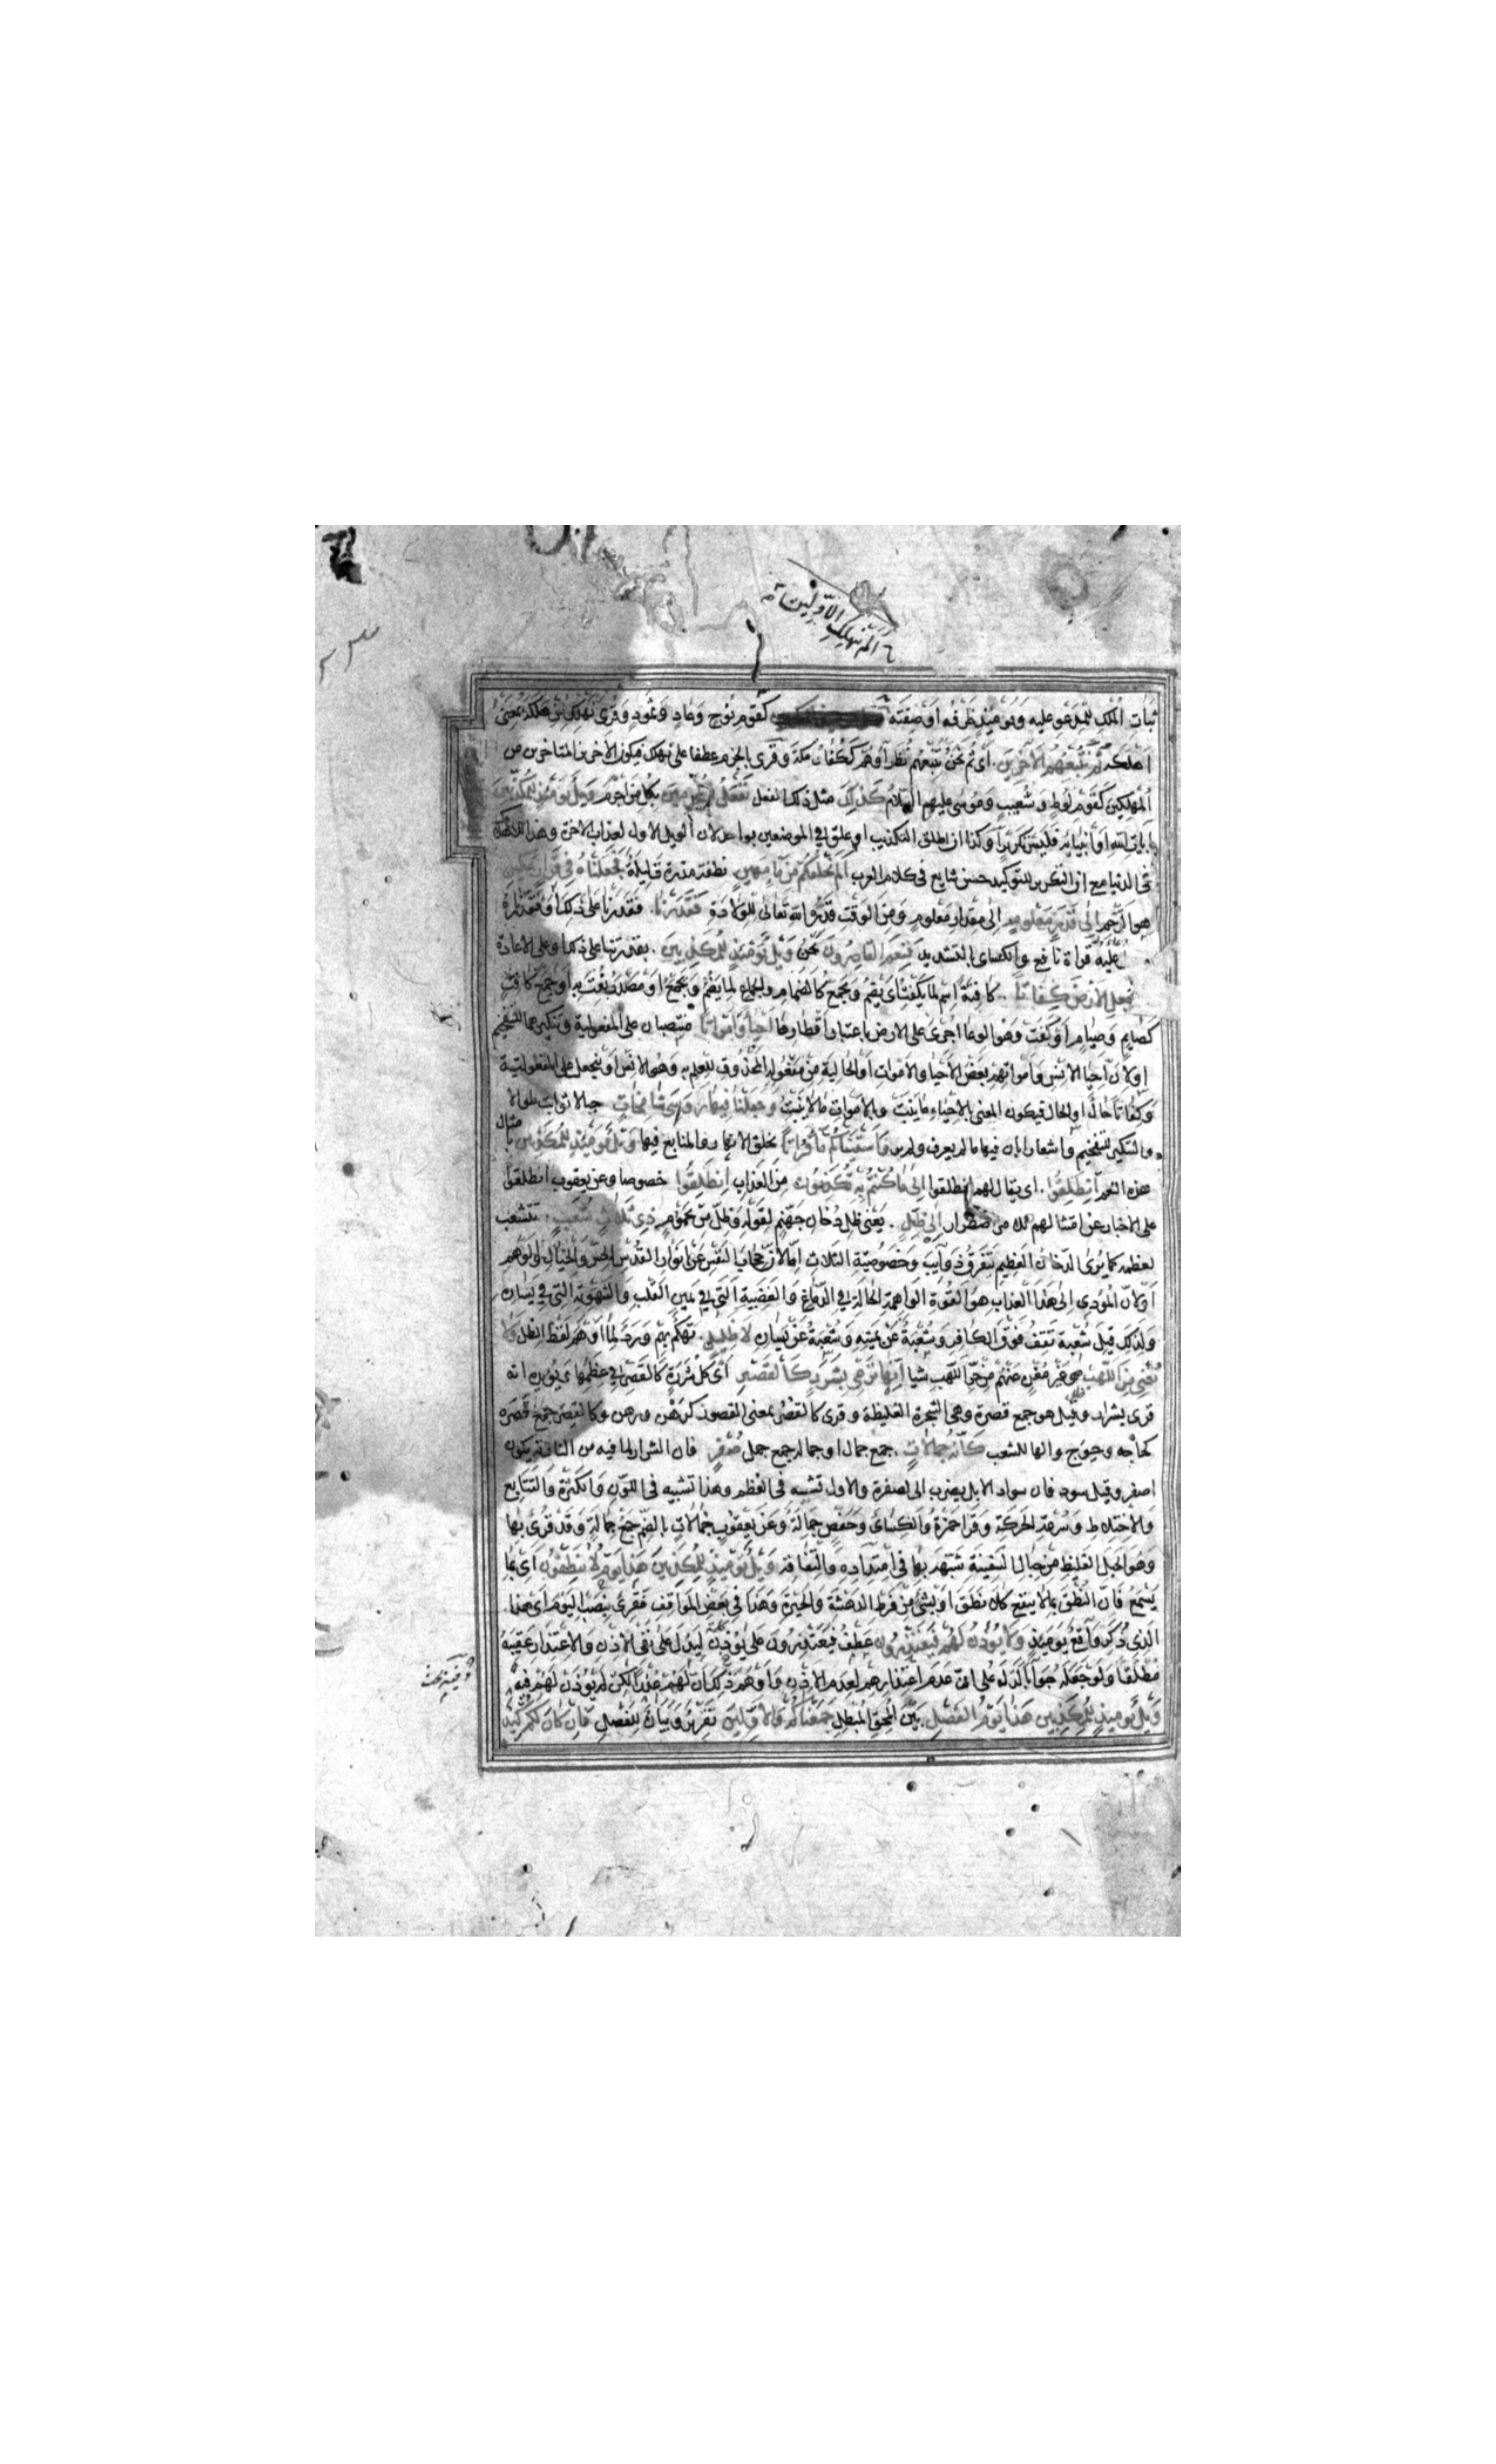 الم نهلك الاولين
ثبات الهلك للمدعو عليه ويومئذ ظرفه او صفته كقوم نوح وعاد وثمود وقرئ نهلك من هلكه بمعنى
اهلكه ثم نتبعهم الاخرين. اي ثم نحن نتبعهم نظراءهم ككفار مكة وقرى بالجزم عطفا على نهلك فيكون الاخرين المتاخرين من
المهلكين كقوم لوط وشعيب وموسى عليهم السلام كذلك مثل ذلك الفعل نفعل بالمجرمين بكل من اجرم ويل يومئذ للمكذبين
بايات الله او انبيائه فليس تكريرا وكذا ان اطلق التكذيب او علق في الموضعين بواحد لان الويل الاول لعذاب الاخرة وهذا للاهلاك
في الدنيا مع ان التكرير للتوكيد حسن شايع في كلام العرب الم نخلقكم من ماء مهين. نطفة مذرة قليلة فجعلناه في قرار مكين
هو الرحم الى قدر معلوم الى مقدار معلوم ومن الوقت قدره الله تعالى للولادة فقدرنا. فقدرنا على ذلك او فقدرناه
عليه قراة نافع والكسائ بالتشديد فنعم القادرون نحن ويل يومئذ للمكذبين. بقدرتنا على ذلك وعلى الاعادة
نجعل الارض كفاتا. كافتة اسم لما يكفت اي يضم ويجمع كالضمام والجماع لما يضم ويجمع او مصدر نعت به او جمع كافت
كصايم وصيام او كفت وهو الوعا اجرى على الارض باعتبار اقطارها احياء وامواتا منتصبان على المفعولية وتنكيرهما للتفخيم
او لان احيا الانس وامواتهم بعض الاحيا والاموات او الحالية من مفعوله المحذوف للعلم به وهو الانس او بنجعل على المفعولية
وكفاتا حال او الحال فيكون المعنى بالاحياء ما ينبت وبالاموات ما لا ينبت وجعلنا فيها رواسى شامخات جبالا ثوابت طوالا
والتنكير للتفخيم واشعار بان فيها ما لم يعرف ولم ير واسقيناكم ماء فراتا بخلق الانهار والمنابع فيها ويل يومئذ للمكذبين بامثال
هذه النعم انطلقوا. اي يقال لهم انطلقوا الى ما كنتم به تكذبون من العذاب انطلقوا خصوصا وعن يعقوب انطلقوا
على الاخبار عن امتثالهم للامر اضطرارا الى ظل. يعنى ظل دخان جهنم لقوله وظل من يحموم ذى ثلاث شعب. تتشعب
لعظمه كما يرى الدخان العظيم يتفرق ذوايب وخصوصية الثلاث اما لان حجاب النفس عن انوار القدس الحس والخيال والوهم
او لان المؤدى الى هذا العذاب هو القوة الواهمة الحالة في الدماغ والغضبية التى في يمين القلب والشهوية التي في يساره
ولذلك قيل شعبة تقف فوق الكافر وشعبة عن يمينه وشعبة عن يساره لا ظليل. تهكم بهم ورد لما اوهم لفظ الظل ولا
يغنى من اللهب وغير مغن عنهم من حر اللهب شيا انها ترمى بشرر كالقصر اي كل شررة كالقصر في عظمها ويؤيده انه
قرى بشرار وقيل هو جمع قصرة وهي الشجرة الغليظة وقرى كالقصر بمعنى القصور كرهن ورهن وكالقصر جمع قصرة
كحاجه وحوج والها للشعب كانه جمالات. جمع جمال او جماله جمع جمل صفر فان الشرار لما فيه من النارية يكون
اصفر وقيل سود فان سواد الابل يضرب الى الصفرة والاول تشبيه في العظم وهذا تشبيه في اللون والكثرة والتتابع
والاختلاط وسرعة الحركة وقرا حمزة والكسائ وحفص جمالة وعن يعقوب جمالات بالضم جمع جمالة وقد قرئ بها
وهو الحبل الغليظ من حبال السفينة شبهه بها في امتداده والتفافه ويل يومئذ للمكذبين هذا يوم لا ينطقون اي بما
يسمع فان النطق بما لا ينفع كلا نطق او بشئ من فرط الدهشة والحيرة وهذا في بعض المواقف فقرئ بنصب اليوم اي هذا
الذي ذكر واقع يومئذ ولا يؤذن لهم فيعتذرون عطف فيعتذرون على يؤذن ليدل على نفى الاذن والاعتذار عقيبه
مطلقا ولو جعله جوابا لدل على ان عدم اعتذارهم لعدم الاذن واوهم ذلك ان لهم عذرا لكن لم يؤذن لهم فيه
ويل يومئذ للمكذبين هذا يوم الفصل بين المحق والمبطل جمعناكم والاولين تقرير وبيان للفصل فان كان لكم كيد